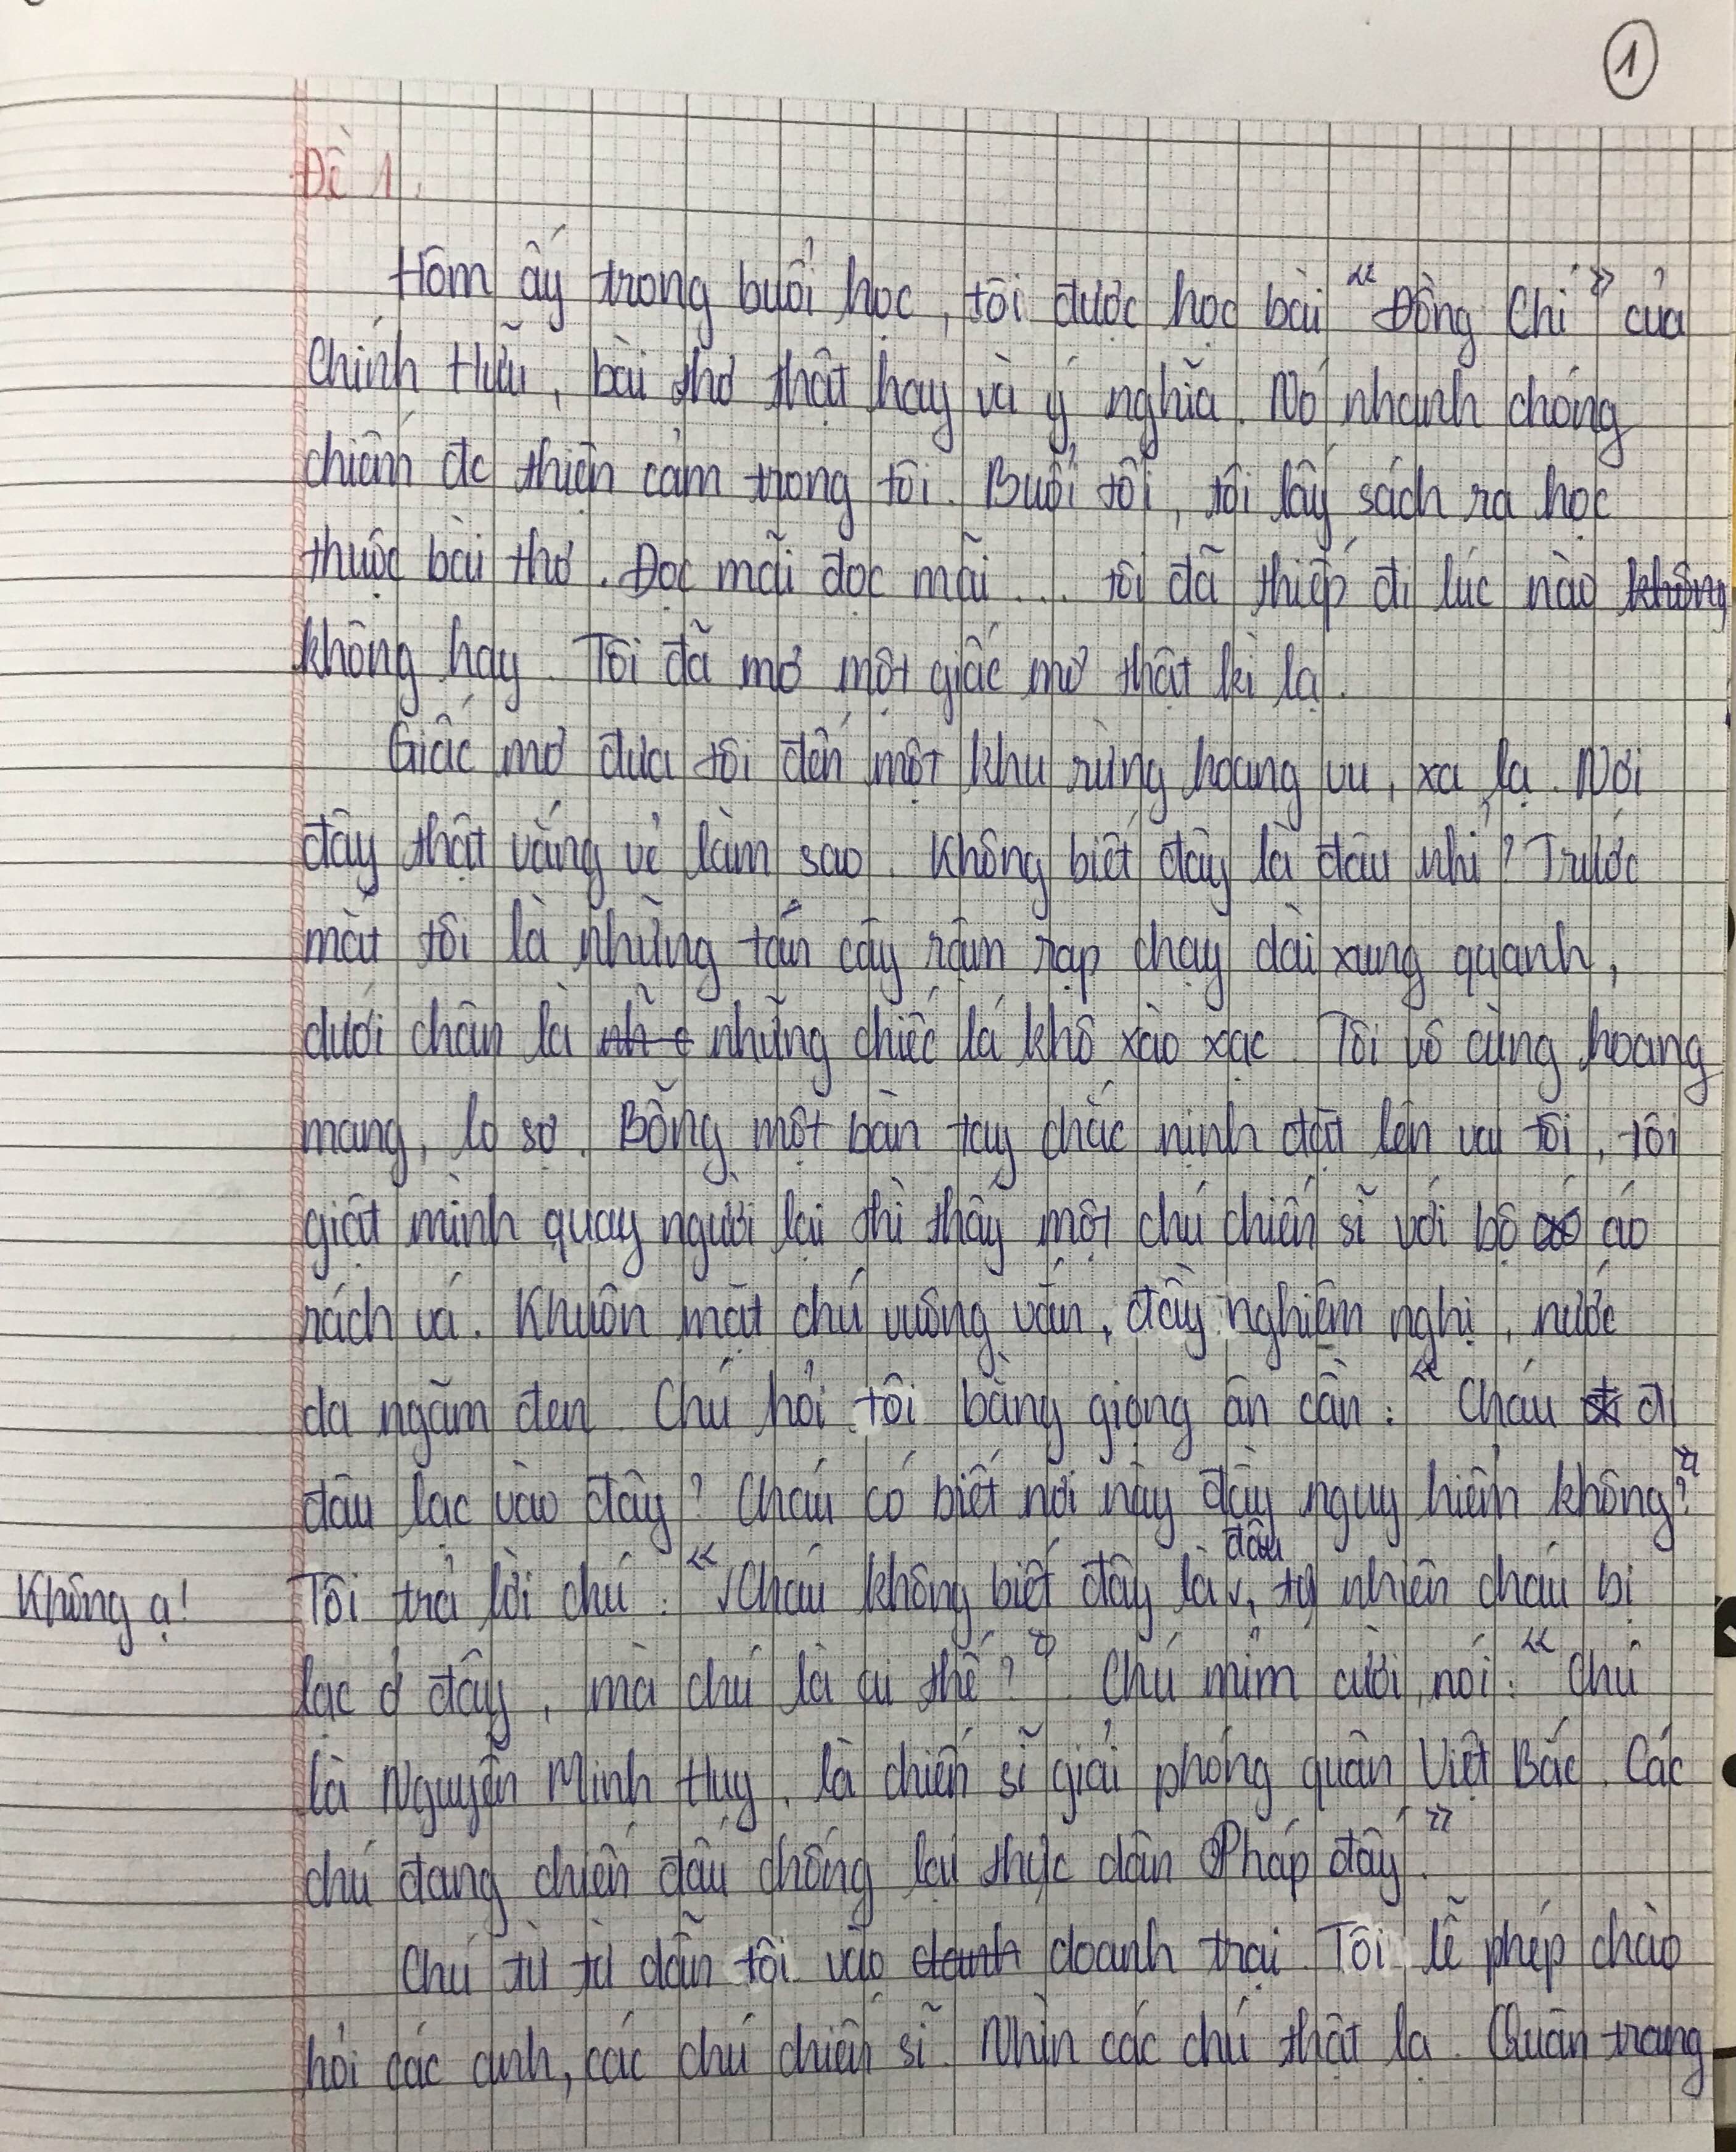 1
Đề 1.
Hôm ấy trong buổi học, tôi được học bài "Đồng Chí" của
Chính Hữu, bài thơ thật hay và ý nghĩa. Nó nhanh chóng
chiếm đc thiện cảm trong tôi. Buổi tối, tôi lấy sách ra học
thuộc bài thơ. Đọc mãi đọc mãi... tôi đã thiếp đi lúc nào không
không hay. Tôi đã mơ một giấc mơ thật kì lạ.
Giấc mơ đưa tôi đến một khu rừng hoang vu, xa lạ. Nơi
đây thật vắng vẻ làm sao. Không biết đây là đâu nhỉ? Trước
mắt tôi là những tán cây rậm rạp chạy dài xung quanh,
dưới chân là những chiếc lá khô xào xạc. Tôi vô cùng hoang
mang, lo sợ. Bỗng một bàn tay chắc nịnh đặt lên vai tôi, tôi
giật mình quay người lại thì thấy một chú chiến sĩ với bộ áo
rách vá. Khuôn mặt chú vuông vắn, đầy nghiêm nghị, nước
da ngăm đen. Chú hỏi tôi bằng giọng ân cần: "Cháu đi
đâu lạc vào đây? Cháu có biết nơi này đầy nguy hiểm không?"
Không ạ! Tôi trả lời chú: "√Cháu không biết đây là đâu, tự nhiên cháu bị
lạc ở đây, mà chú là ai thế?". Chú mỉm cười, nói: "Chú
là Nguyễn Minh Huy, là chiến sĩ giải phóng quân Việt Bắc. Các
chú đang chiến đấu chống lại thực dân Pháp đấy."
Chú từ từ dẫn tôi vào doanh doanh trại. Tôi lễ phép chào
hỏi các anh, các chú chiến sĩ. Nhìn các chú thật lạ. Quân trang